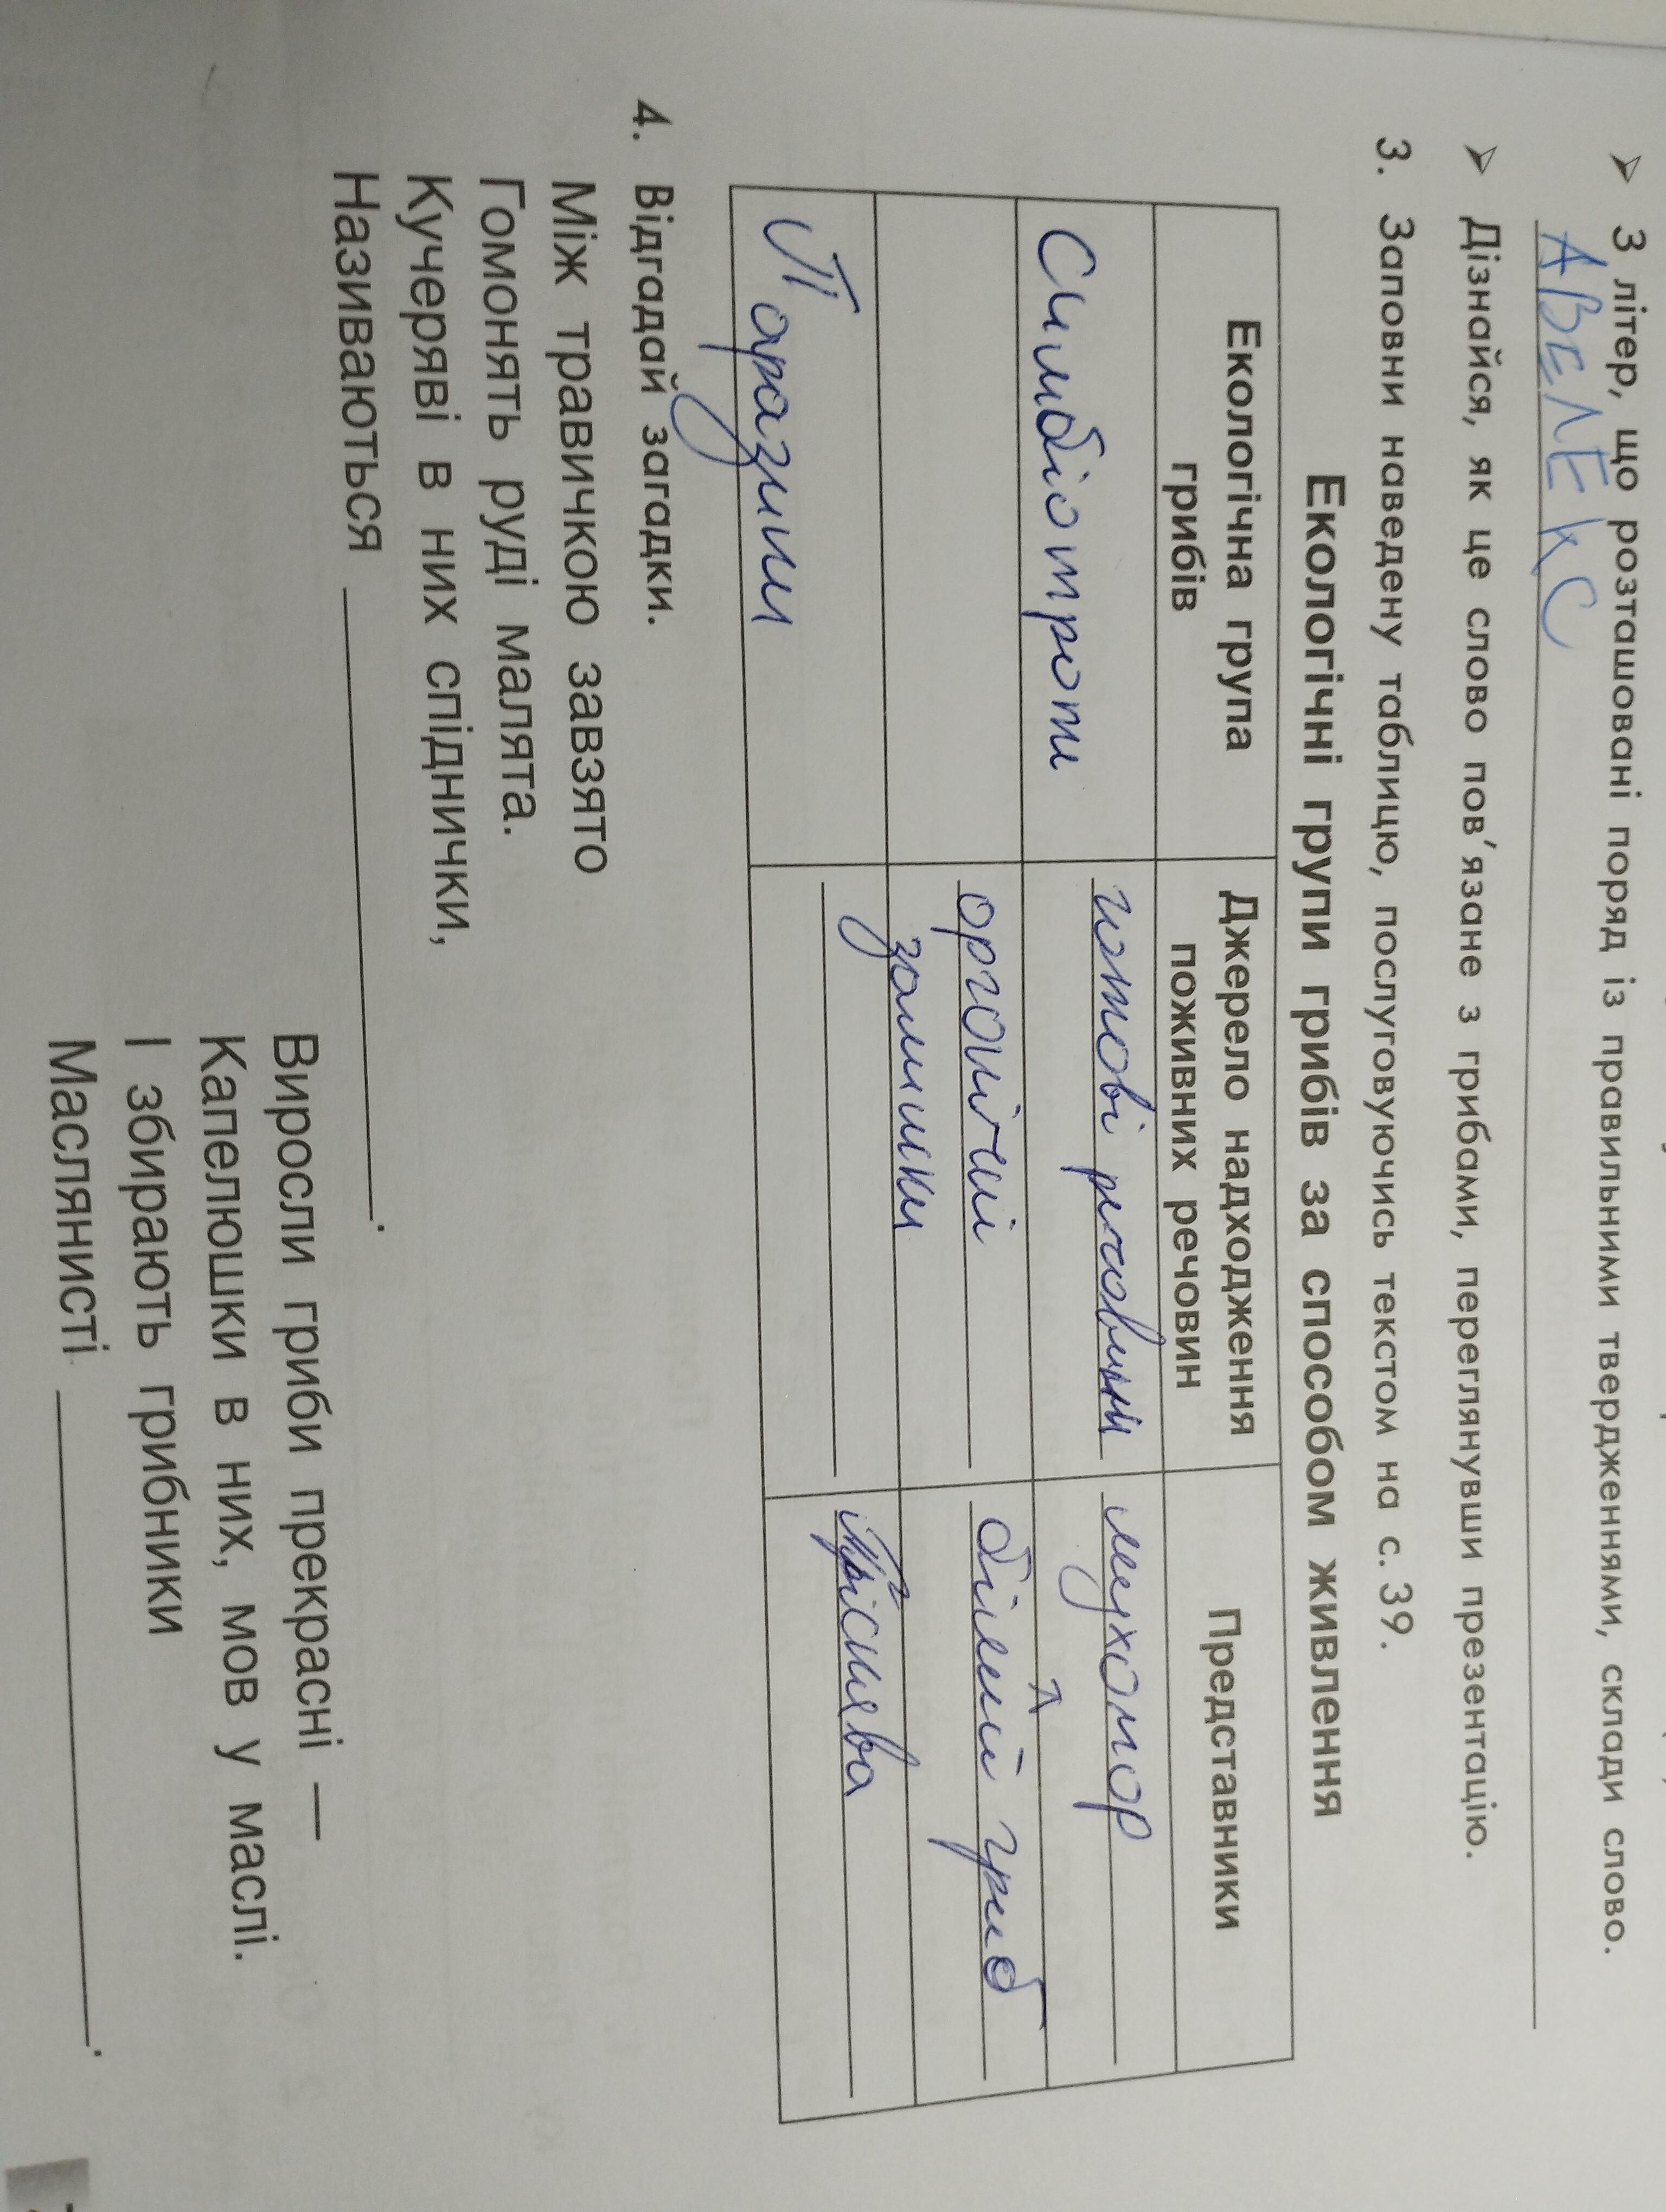 ➢ З літер, що розташовані поряд із правильними твердженнями, склади слово.
АВЕЛЕКС
➢ Дізнайся, як це слово пов’язане з грибами, переглянувши презентацію.
3. Заповни наведену таблицю, послуговуючись текстом на с. 39.
Екологічні групи грибів за способом живлення
Екологічна група грибів
Джерело надходження поживних речовин
Представники
Симбіотроти
готові речовини
мухомор
органічні
залишки
білий гриб
Паразити
4. Відгадай загадки.
Між травичкою завзято
Гомонять руді малята.
Кучеряві в них спіднички,
Називаються ____.
Виросли гриби прекрасні —
Капелюшки в них, мов у маслі.
І збирають грибники
Маслянисті ____.